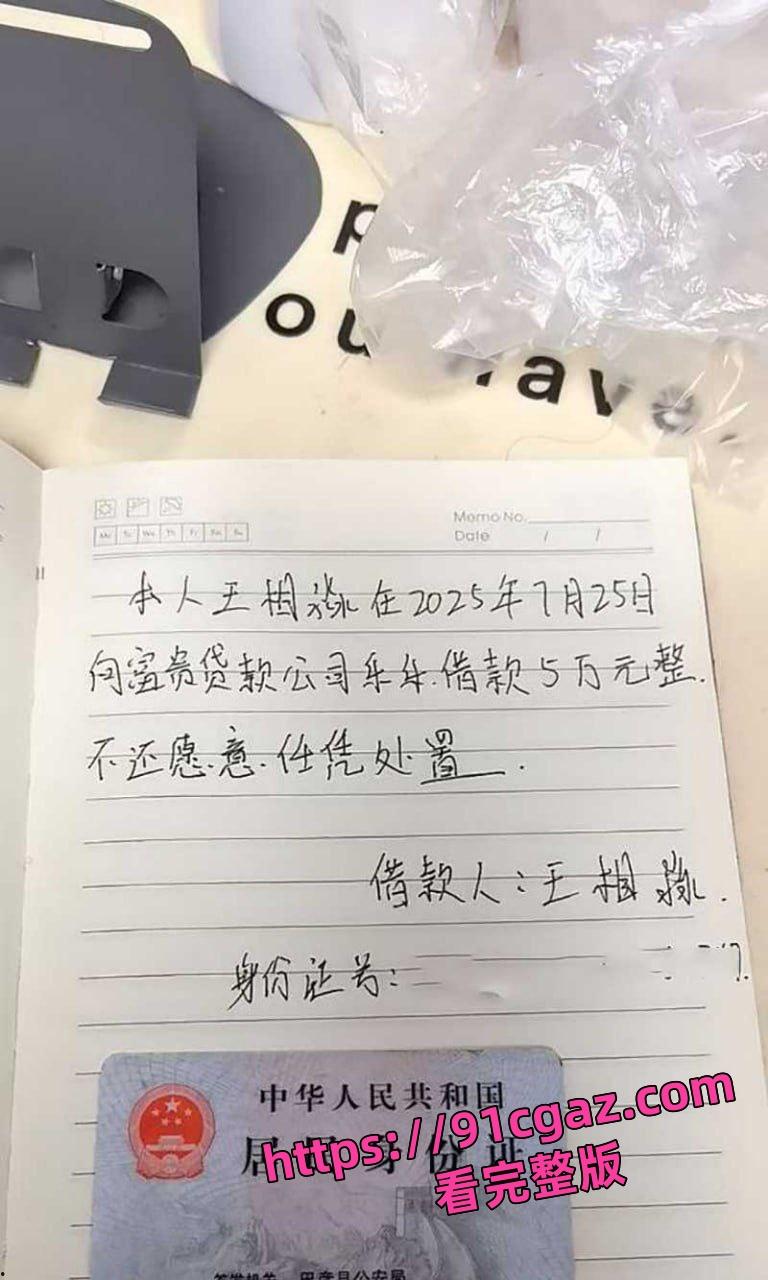 Memo No.
Date / /
Mo Tu We Th Fr Sa Su
本人王相淼在2025年7月25日
向富贵贷款公司乐乐.借款5万元整.
不还愿意.任凭处置.
借款人:王相淼.
身份证号:
中华人民共和国
居民身份证
https://91cgaz.com
看完整版